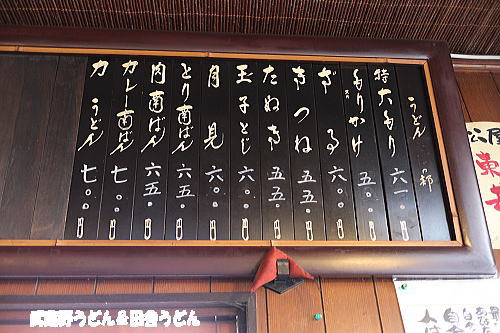 うどん の部
特大もり 六一〇円
もりかけ 五〇〇円
ざる 六〇〇円
きつね 五五〇円
たぬき 五五〇円
玉子とじ 六〇〇円
月見 六〇〇円
とり南ばん 六五〇円
肉南ばん 六五〇円
カレー南ばん 七〇〇円
力うどん 七〇〇円
武蔵野うどん&田舎うどん